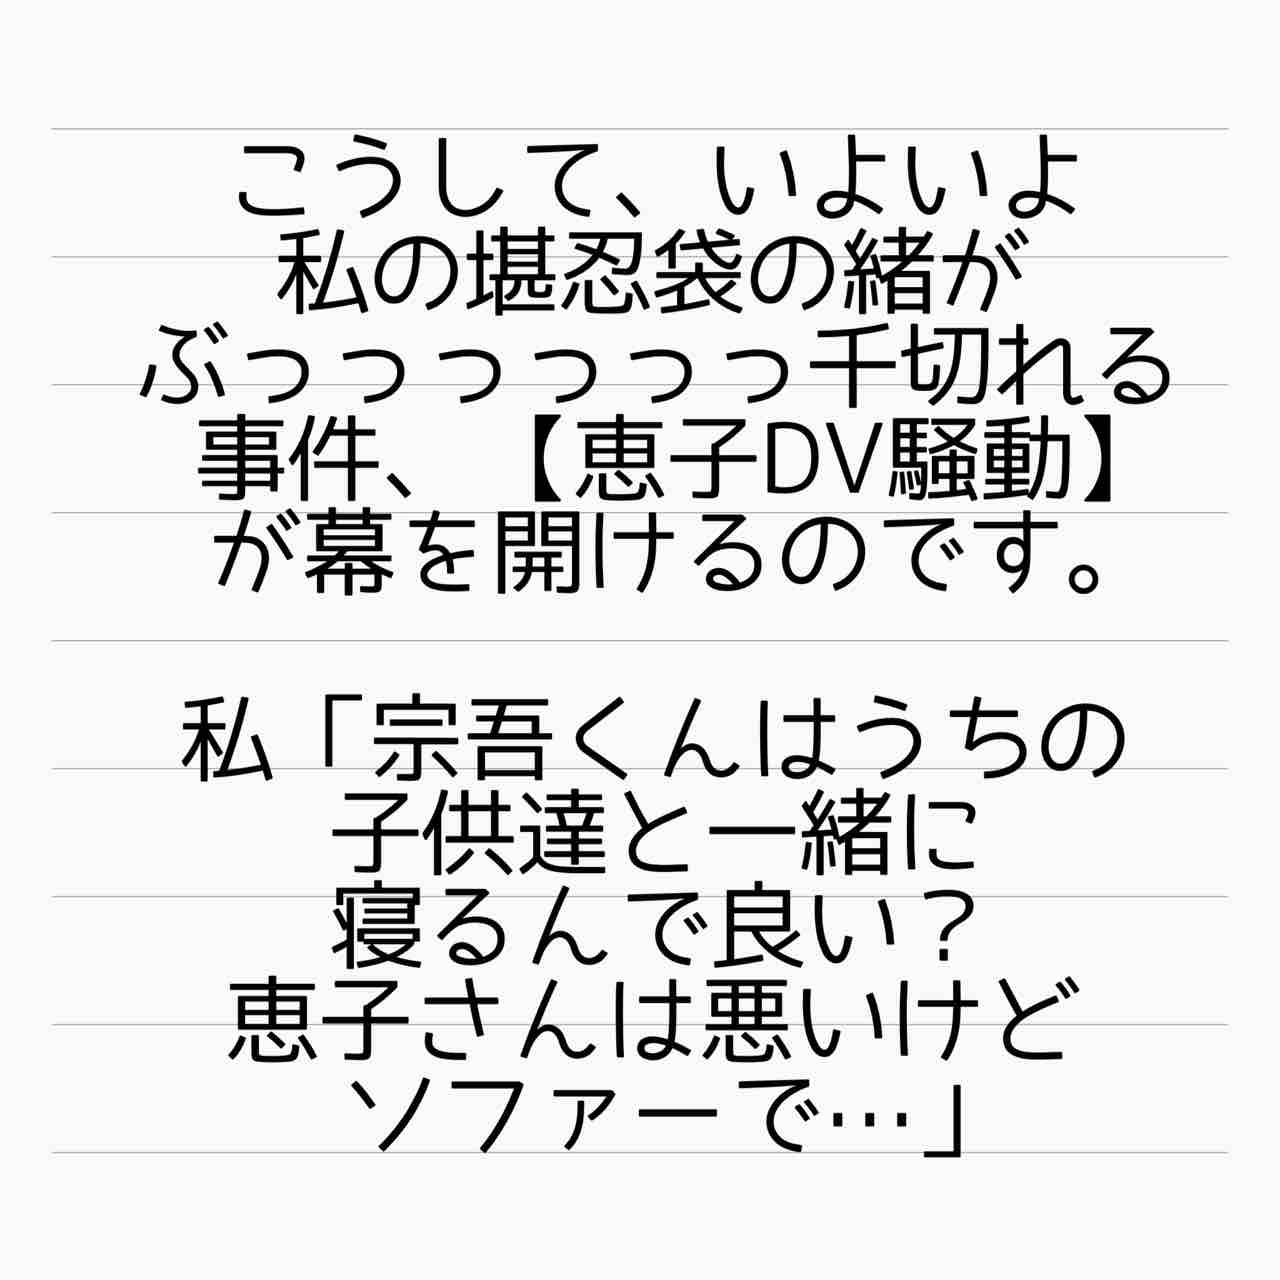 こうして、いよいよ
私の堪忍袋の緒が
ぶっっっっっっ千切れる
事件、【恵子DV騒動】
が幕を開けるのです。
私「宗吾くんはうちの
子供達と一緒に
寝るんで良い？
恵子さんは悪いけど
ソファーで…」